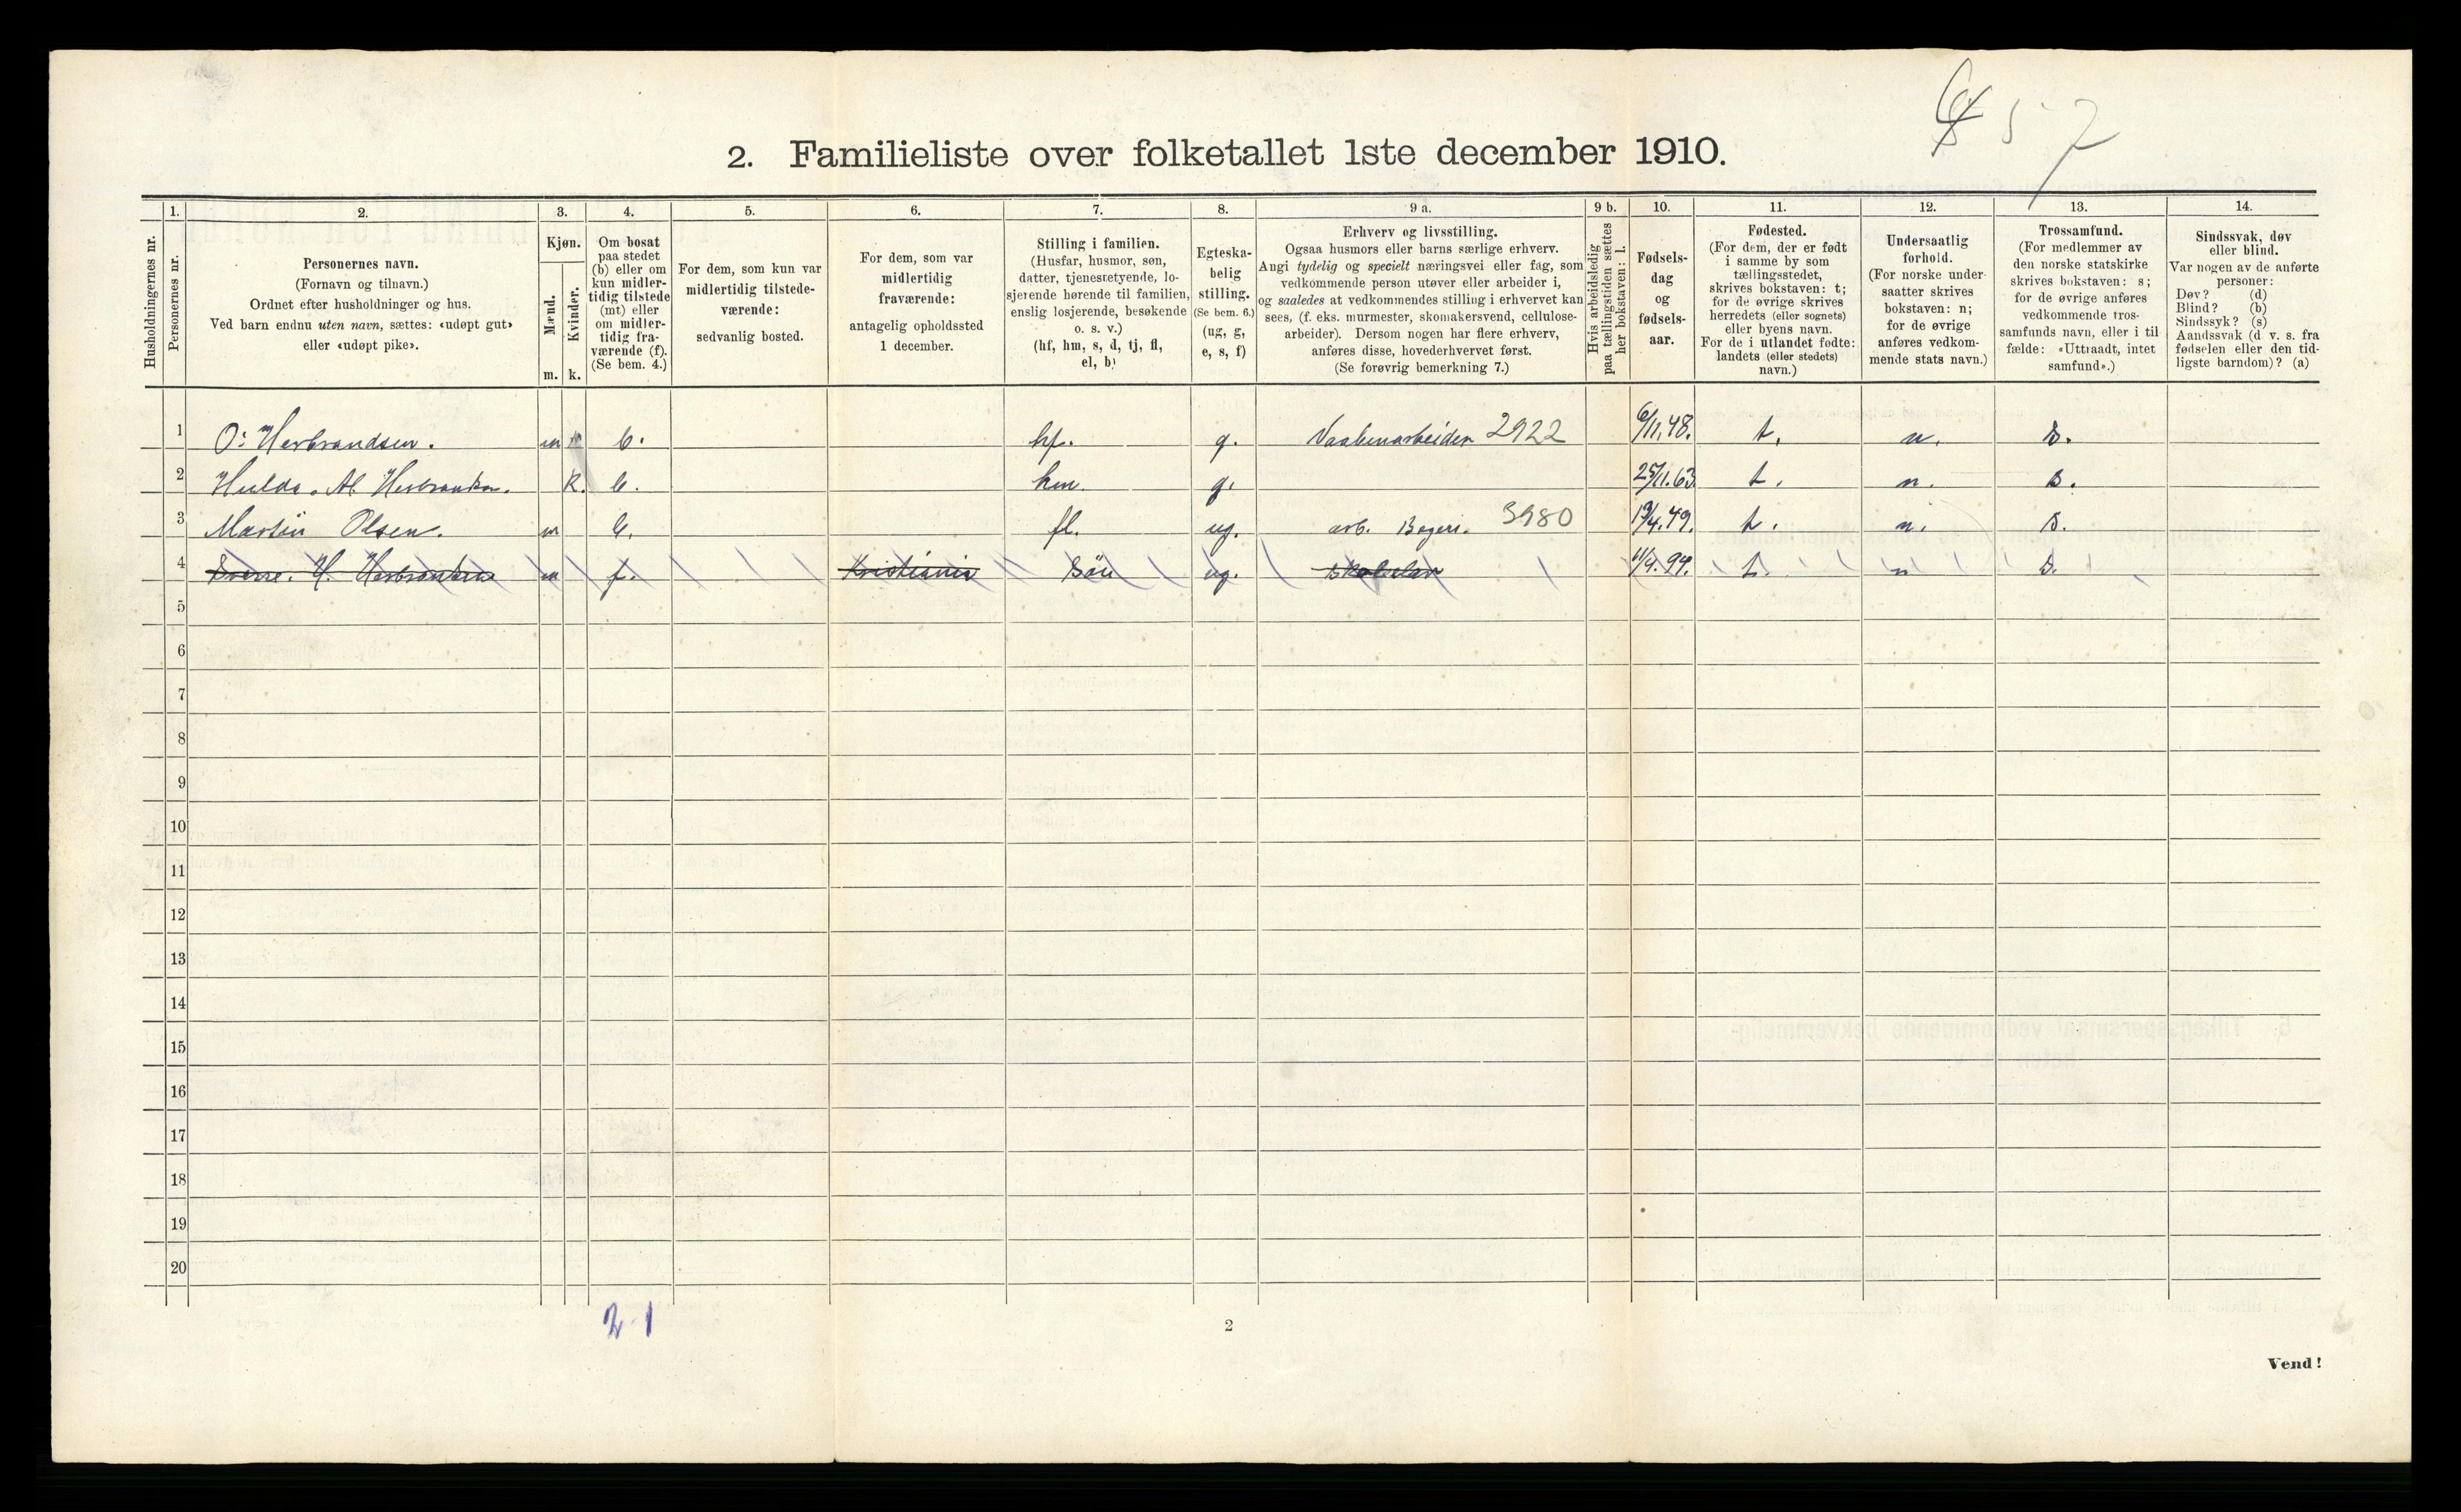 2. Familieliste over folketallet 1ste december 1910.
5 7
Husholdningernes nr.
1.
Personernes nr.
2.
Personernes navn.
(Fornavn og tilnavn.)
Ordnet efter husholdninger og hus.
Ved barn endnu uten navn, sættes: «udøpt gut»
eller «udøpt pike».
3.
Kjøn.
Mænd.
Kvinder.
m. k.
4.
Om bosat
paa stedet
(b) eller om
kun midler-
tidig tilstede
(mt) eller
om midler-
tidig fra-
værende (f).
(Se bem. 4.)
5.
For dem, som kun var
midlertidig tilstede-
værende:
sedvanlig bosted.
6.
For dem, som var
midlertidig
fraværende:
antagelig opholdssted
1 december.
7.
Stilling i familien.
(Husfar, husmor, søn,
datter, tjenestetyende, lo-
sjerende hørende til familien,
enslig losjerende, besøkende
o. s. v.)
(hf, hm, s, d, tj, fl,
el, b)
8.
Egteska-
belig
stilling.
(Se bem. 6.)
(ug, g,
e, s, f)
9 a.
Erhverv og livsstilling.
Ogsaa husmors eller barns særlige erhverv.
Angi tydelig og specielt næringsvei eller fag, som
vedkommende person utøver eller arbeider i,
og saaledes at vedkommendes stilling i erhvervet kan
sees, (f. eks. murmester, skomakersvend, cellulose-
arbeider). Dersom nogen har flere erhverv,
anføres disse, hovederhvervet først.
(Se forøvrig bemerkning 7.)
9 b.
Hvis arbeidsledig
paa tællingstiden sættes
her bokstaven: l.
10.
Fødsels-
dag
og
fødsels-
aar.
11.
Fødested.
(For dem, der er født
i samme by som
tællingsstedet,
skrives bokstaven: t;
for de øvrige skrives
herredets (eller sognets)
eller byens navn.
For de i utlandet fødte:
landets (eller stedets)
navn.)
12.
Undersaatlig
forhold.
(For norske under-
saatter skrives
bokstaven: n;
for de øvrige
anføres vedkom-
mende stats navn.)
13.
Trossamfund.
(For medlemmer av
den norske statskirke
skrives bokstaven: s;
for de øvrige anføres
vedkommende tros-
samfunds navn, eller i til-
fælde: «Uttraadt, intet
samfund».)
14.
Sindssvak, døv
eller blind.
Var nogen av de anførte
personer:
Døv? (d)
Blind? (b)
Sindssyk? (s)
Aandssvak (d. v. s. fra
fødselen eller den tid-
ligste barndom)? (a)
1 O: Herbrandsen. m b. hf. g. Vaabenarbeider 2922 6/11.48. t. n. s.
2 Hulda. M Herbrandsen. k. b. hm. g. 25/11.63. t. n. s.
3 Martin Olsen. m b. fl. ug. arb. Bageri. 3980 t. n. s.
4 Sverre. H. Herbrandsen m f. Kristiania Sön ug. Skoleelev 11/9.99. t. n s.
5
6
7
8
9
10
11
12
13
14
15
16
17
18
19
20
2 1
2
Vend!